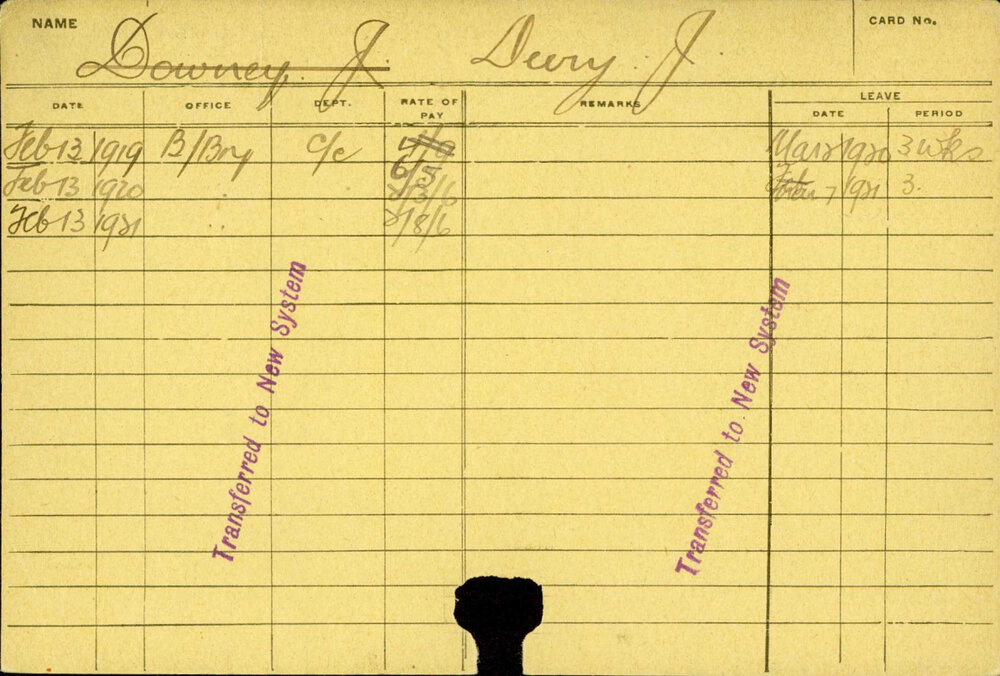 NAME Downey, J. Devry J. CARD No.
DATE OFFICE DEPT. RATE OF PAY REMARKS LEAVE
DATE PERIOD
Feb 13 1919 B/Bny C/c Mar 1920 3 wks
Feb 13 1920 " 2/13/6 7 1921 3.
Feb 13 1921 " 2/18/6
Transferred to New System
Transferred to New System